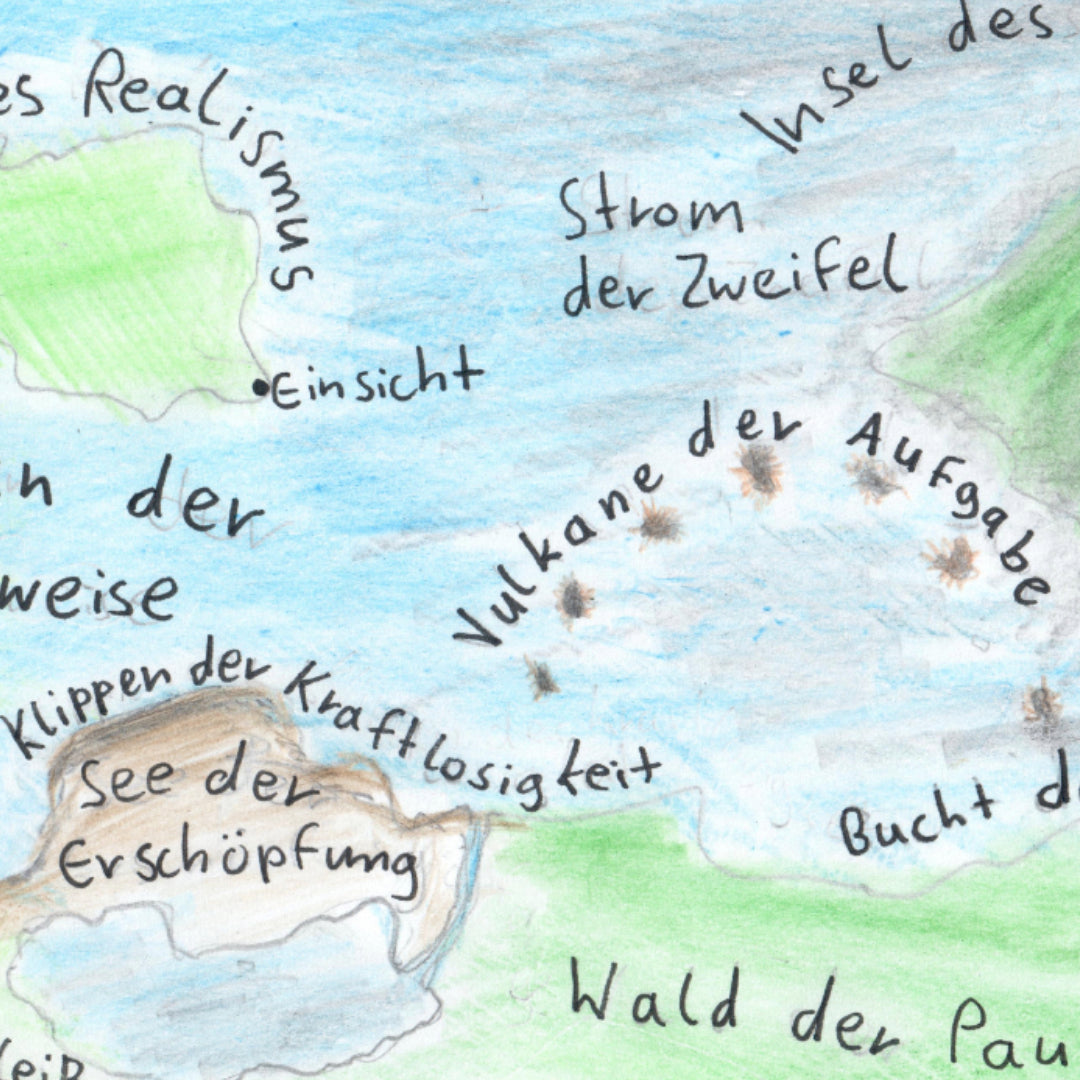 Insel des
es Realismus
Strom
der Zweifel
Einsicht
Vulkane der Aufgabe
n der
weise
Klippen der Kraftlosigkeit
See der
Erschöpfung
Bucht d
Wald der Pau
leiß